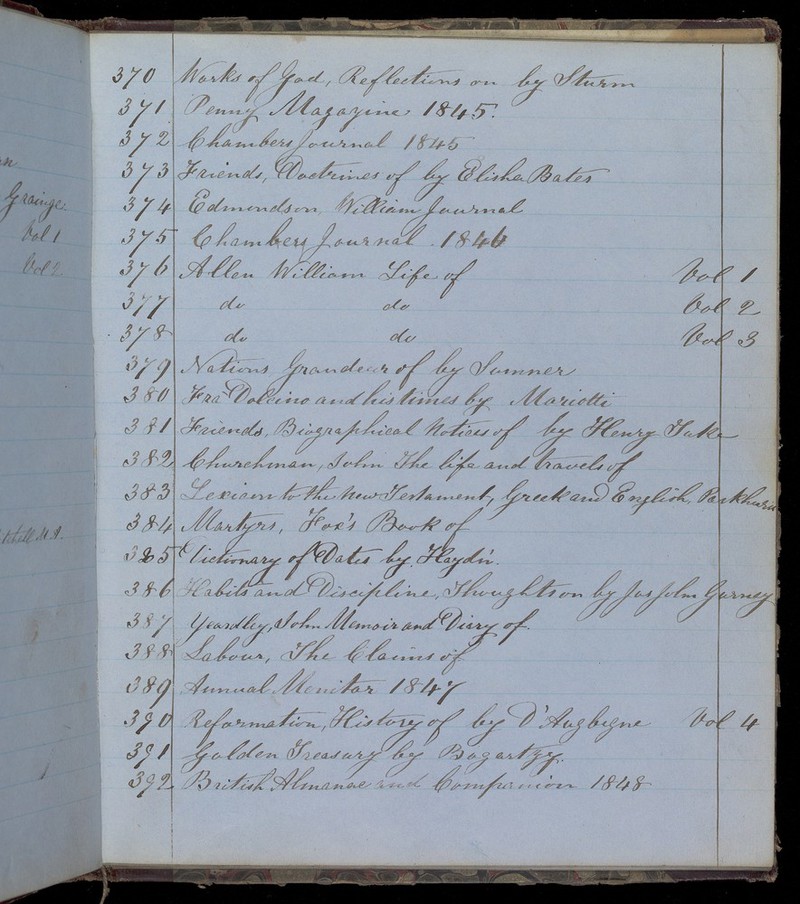 n
Grainge
Vol 1
Vol 2
M.A.
370 Works of God, Reflections on by Sturm
371 Penny Magazine 1845.
372 Chambers Journal 1845
373 Friends, Doctrines of by Elisha Bates
374 Edmondson, William Journal
375 Chambers Journal 1846
376 Allen William Life of Vol 1
377 do do Vol 2
378 do do Vol 3
379 Nations Grandeur of by Sumner
380 Fra Dolcino and his times by Mariotti
381 Friends, Biographical Notices of by Henry Tuke
382 Churchman, John The life and travels of
383 Lexicon to the New Testament, Greek and English, Parkhurst
384 Martyrs, Fox's Book of
385 Dictionary of Dates by Haydn.
386 Habits and Discipline, Thoughts on by Jos John Gurney
387 Yeardley, John Memoir and Diary of
388 Labour, The Claims of
389 Annual Monitor 1847
390 Reformation, History of by D'Augbigne Vol 4
391 Golden Treasury by Bogartzy.
392 British Almanac and Companion 1848